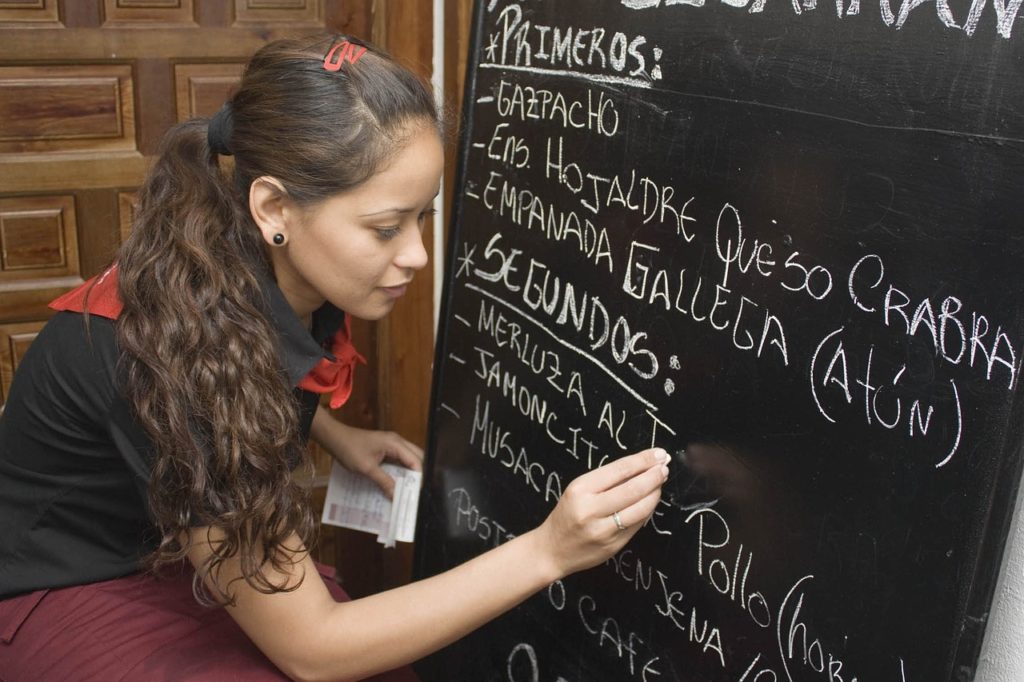 *PRIMEROS:
-GAZPACHO
-ENS. HOJALDRE QUESO CRABRA
-EMPANADA GALLEGA (ATÚN)
*SEGUNDOS:
- MERLUZA AL T
- JAMONCIT DE POLLO (hor
- MUSACA RENJENA
POST O CAFE